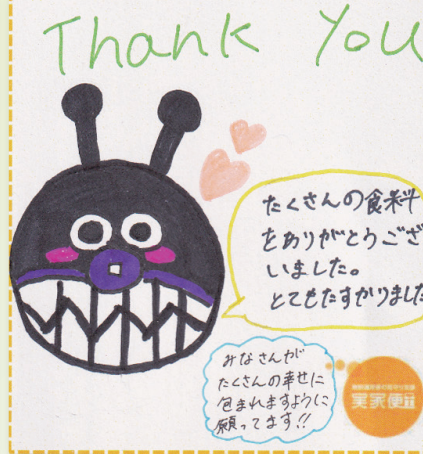 Thank You
たくさんの食料
をありがとうござ
いました。
とてもたすかりました
みなさんが
たくさんの幸せに
包まれますように
願ってます!!
実家便